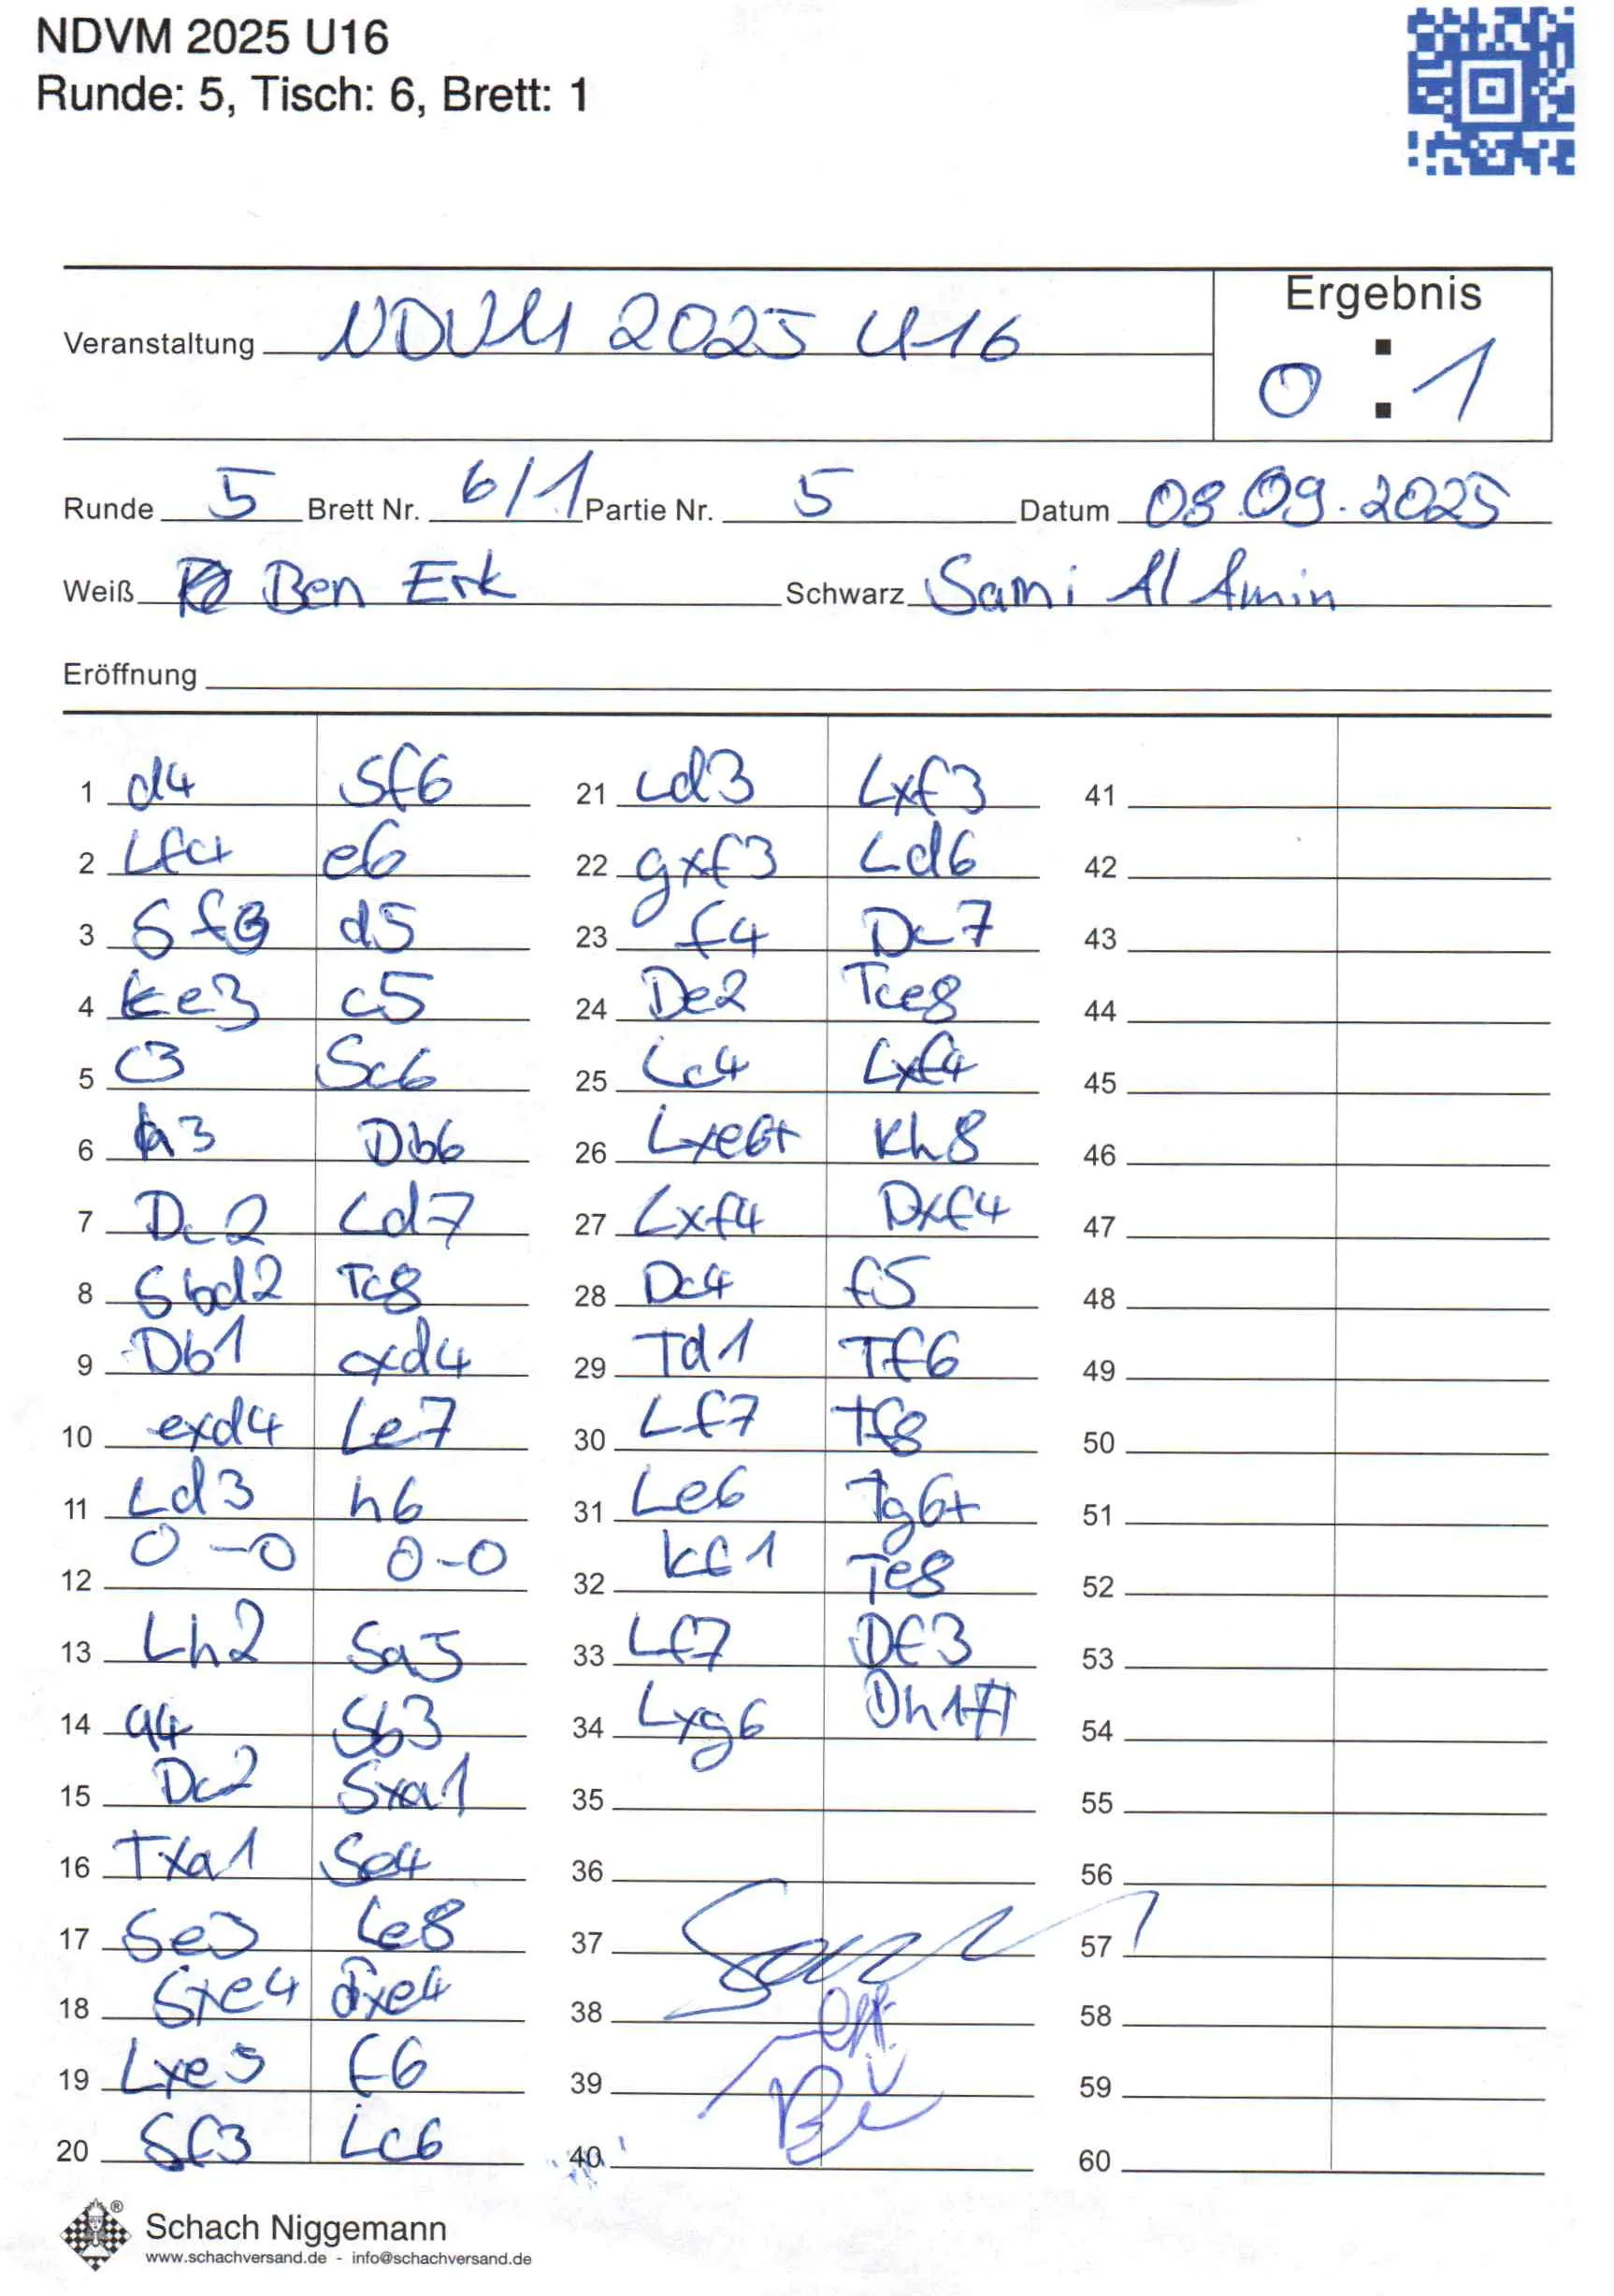 NDVM 2025 U16
Runde: 5, Tisch: 6, Brett: 1
Ergebnis
Veranstaltung NDVM 2025 U16
0 : 1
Runde 5 Brett Nr. 6/1 Partie Nr. 5 Datum 08.09.2025
Weiß Ben Erk Schwarz Sami Al Amin
Eröffnung
1 d4 Sf6 21 Ld3 Lxf3 41
2 Lf4 e6 22 gxf3 Ld6 42
3 Sf3 d5 23 f4 Dc7 43
4 e3 c5 24 De2 Tce8 44
5 c3 Sc6 25 Lc4 Lxf4 45
6 h3 Db6 26 Lxe6+ Kh8 46
7 Dc2 Ld7 27 Lxf4 Dxf4 47
8 Sbd2 Tc8 28 Dc4 f5 48
9 Db1 cxd4 29 Td1 Tf6 49
10 exd4 Le7 30 Lf7 Tf8 50
11 Ld3 h6 31 Le6 Tg6+ 51
12 0-0 0-0 32 Kf1 Te8 52
13 Lh2 Sa5 33 Lf7 Df3 53
14 a4 Sb3 34 Lxg6 Dh1# 54
15 Dc2 Sxa1 35 55
16 Txa1 Se4 36 56
17 Se5 Le8 37 57
18 Sxe4 dxe4 38 58
19 Lxe4 f6 39 59
20 Sf3 Lc6 40 60
Schach Niggemann
www.schachversand.de - info@schachversand.de